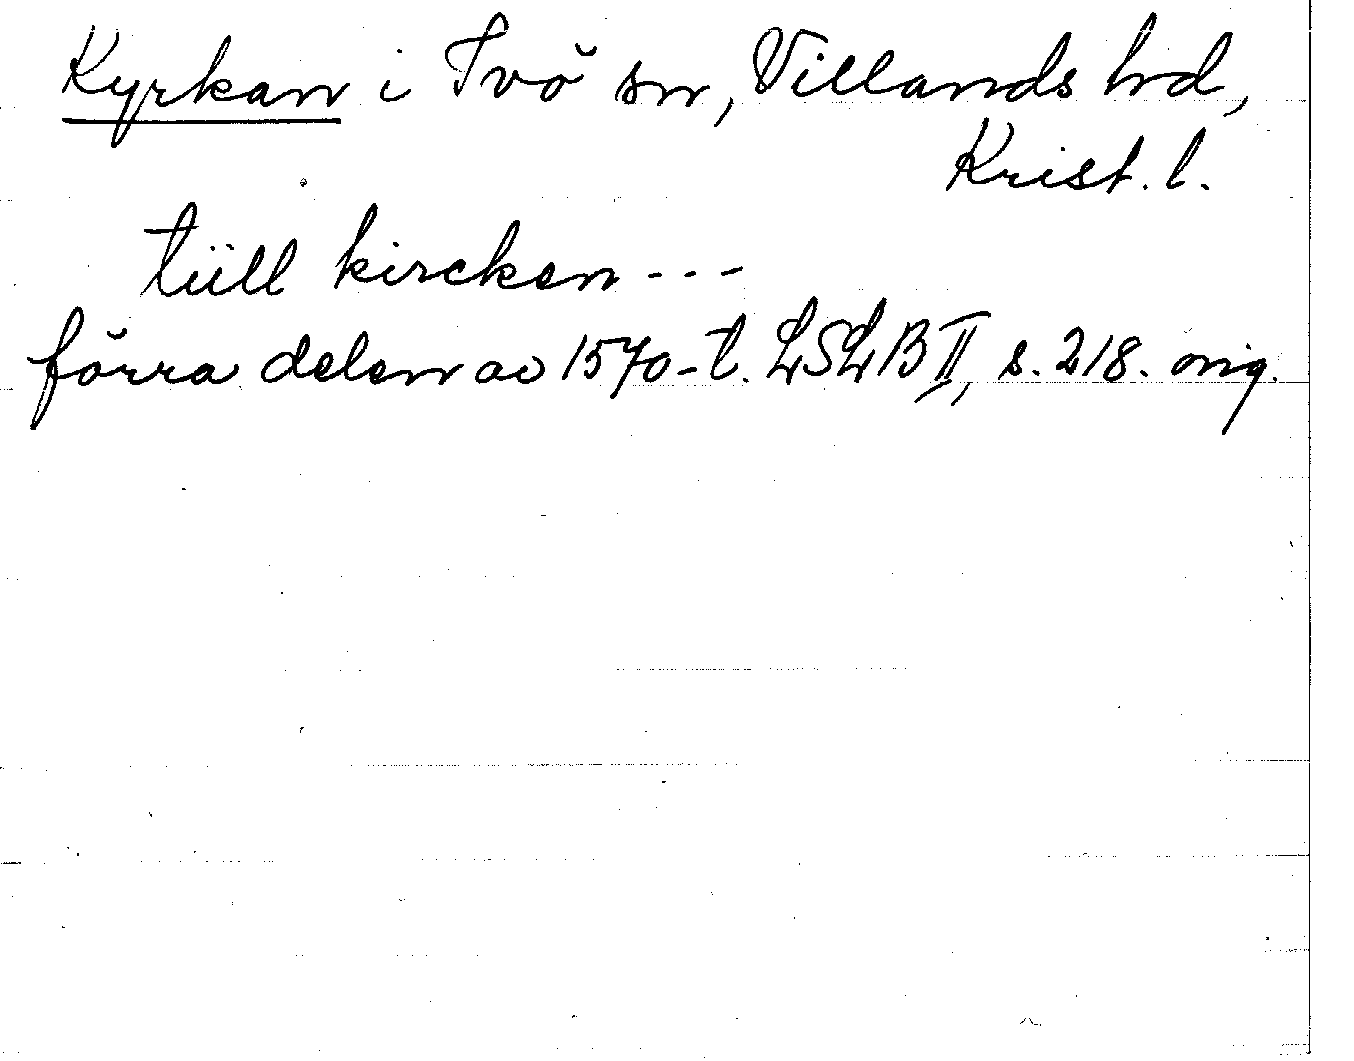 Kyrkan i Ivö sn, Villands hd,
Krist. l.
tiill kircken - - -
förra delen av 1570-t. LSLB II, s. 218. orig.